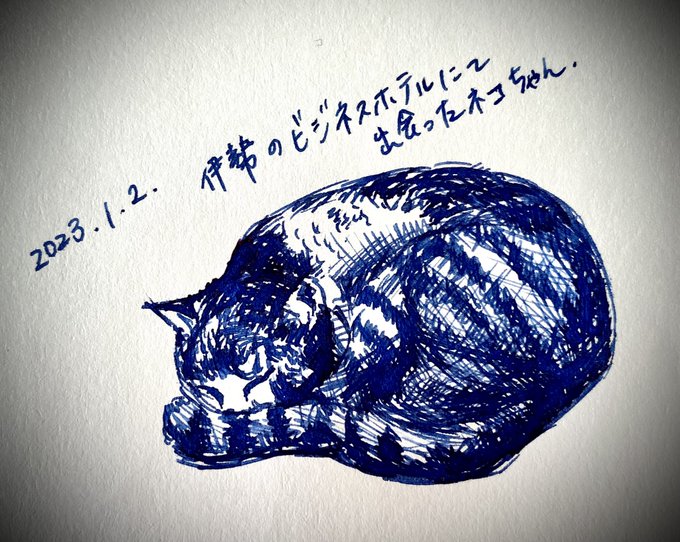 2023.1.2.
伊勢のビジネスホテルにて
出会ったネコちゃん.